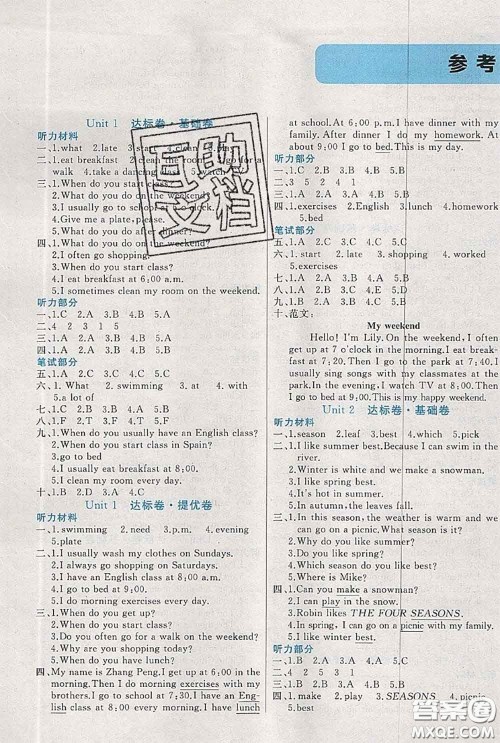 参考
Unit 1 达标卷·基础卷
听力材料
一、1. what 2. late 3. start
二、1. eat breakfast 2. clean the room 3. go for a
walk 4. take a dancing class
三、1. When do you start class?
2. When do you go shopping?
3. I usually go to school at 8 o'clock.
4. Give me a plate, please!
5. What do you do after dinner?
四、1. What do you do on the weekend?
2. I often go shopping.
3. When do you start class?
4. I eat breakfast at 6:00 a.m.
5. I sometimes clean my room on the weekend.
听力部分
一、1. C 2. A 3. B 4. B 5. A
二、4 2 3 1 5
三、1. C 2. A 3. B 4. A 5. B
四、1. B 2. A 3. A 4. A 5. B
笔试部分
五、1. C 2. A 3. B 4. A 5. C
六、1. What 2. swimming 3. at 4. eat
5. a lot of
七、1. C 2. B 3. B 4. A 5. B
八、1. F 2. T 3. F 4. T 5. F
九、1. When do you usually have English class?
2. When do you start class in Spain?
3. When do you go to bed?
4. I usually eat breakfast at 8:00.
5. I clean my room every weekend.
十、1. B 2. D 3. A 4. C
Unit 1 达标卷·提优卷
听力材料
一、1. swimming 2. need 3. p.m. 4. evening
5. plate
二、1. I usually wash my clothes on Sundays.
2. I always go shopping on Saturdays.
3. I have an English class at 8:00 a.m.
4. I go to bed at 9:00.
5. I do morning exercises every day.
三、1. When do you get up?
2. When do you start class?
3. Do you often go for a walk on the weekend?
4. Why are you shopping today?
5. When do you have lunch?
四、My name is Zhang Peng. I get up at 6:00 in the
morning. Then I do morning exercises with my
brothers. I go to school at 7:30. I have an Eng-
lish class every morning. We usually have lunch
at school. At 6:00 p.m. I have dinner with my
family. After dinner, I do my homework. At
about 9:00 I go to bed. This is my day.
听力部分
一、1. C 2. A 3. A 4. B 5. C
二、2 5 3 1 4
三、1. C 2. B 3. C 4. A 5. B
四、1. exercises 2. English 3. lunch 4. homework
5. bed
笔试部分
五、1. C 2. A 3. B 4. A 5. C
六、1. start 2. at 3. shopping 4. worked
5. exercises
七、1. C 2. B 3. A 4. C 5. A
八、1. C 2. A 3. B 4. D 5. E
九、1. B 2. A 3. C 4. B 5. A
十、范文:
My weekend
Hello! I'm Lily. On the weekend, I often
get up at 7 o'clock in the morning. I eat breakfast
at 7:20. Then I go to the park at 7:40. I
usually sing songs with my classmates in the park.
In the evening, I watch TV at 8:00. I go to bed
at 9:00. This is my happy weekend.
Unit 2 达标卷·基础卷
听力材料
一、1. season 2. leaf 3. best 4. because 5. pick
二、1. I like summer best. Because I can swim in the
river.
2. Winter is white and we make a snowman.
3. I like spring best.
4. It's hot in summer.
5. In autumn, the leaves fall.
三、1. In this season, the weather is warm and we can
go on a picnic. What season is it?
2. Why do you like summer?
3. Do you like spring?
4. Which season do you like best?
5. Where is Mike?
四、1. Can you make a snowman?
2. I can play in the snow.
3. Robin likes THE FOUR SEASONS.
4. In spring, I can go on a picnic with my family.
5. I like winter best.
听力部分
一、1. B 2. A 3. C 4. A 5. C
二、2 5 4 3 1
三、1. C 2. A 3. B 4. A 5. C
四、1. make 2. play 3. SEASONS 4. picnic
5. best
答案圈
MXQE.COM